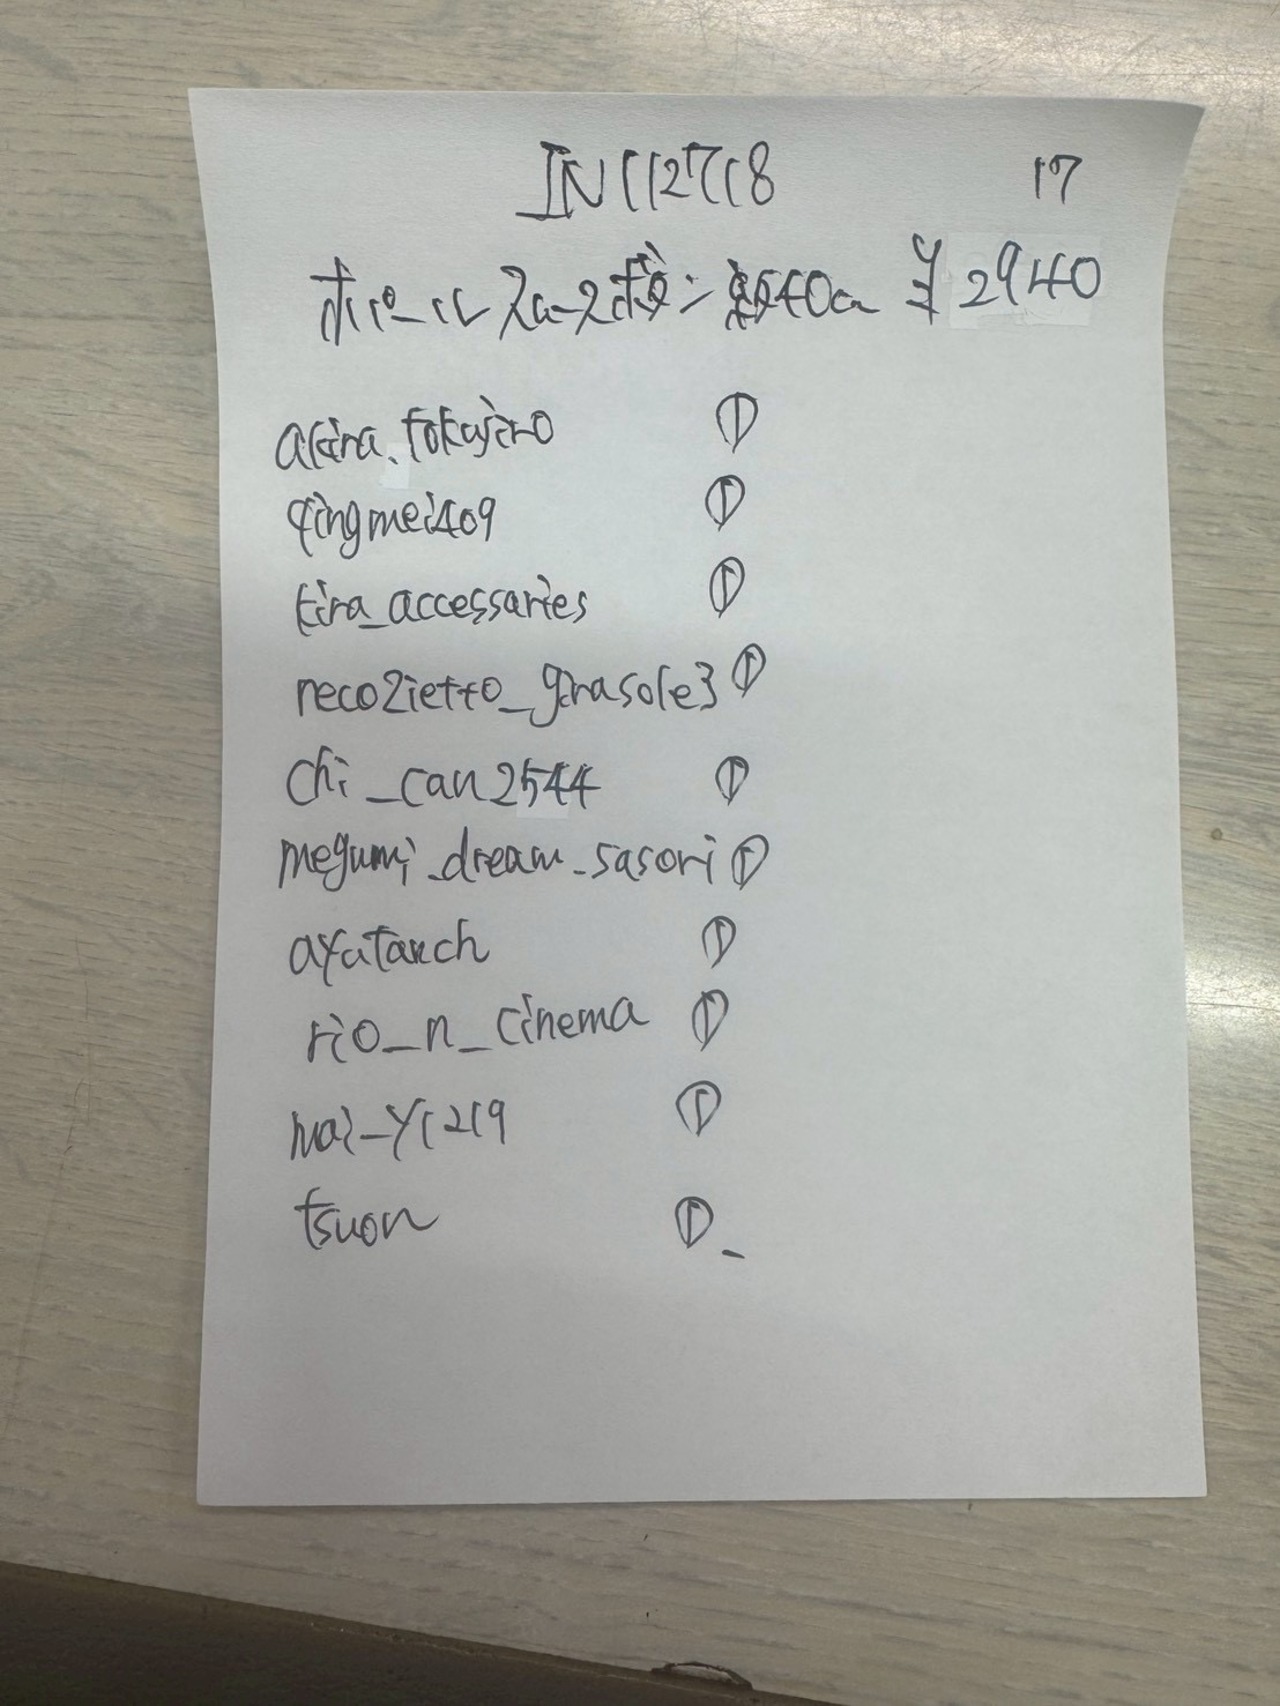 IN112718 17
¥2940
akira.tokujiro ①
qingmei409 ①
kira_accessaries ①
reco2ietto_girasole3 ①
chi_can2544 ①
megumi_dream_sasori ①
ayatanch ①
rio_n_cinema ①
mai_y1219 ①
tsuon ①